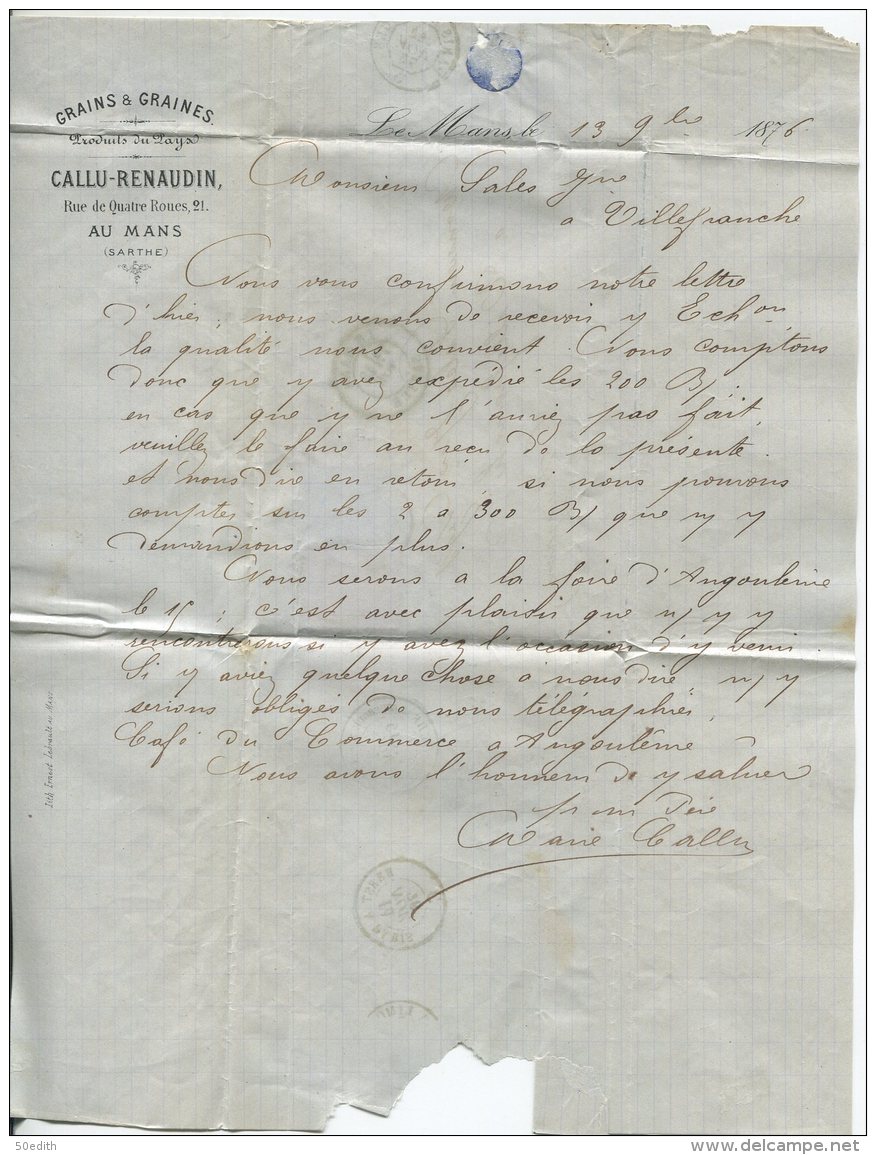 GRAINS & GRAINES.
Produits du Pays
CALLU-RENAUDIN,
Rue de Quatre Roues, 21.
AU MANS
(SARTHE)
Le Mans, le 13 9bre 1876
Monsieur Sales Jne
a Villefranche
Nous vous confirmons notre lettre
d'hier; nous venons de recevoir y Echon
la qualité nous convient. Nous comptons
donc que y avez expédié les 200 B/.
en cas que y ne l'auriez pas fait,
veuillez le faire au recu de la présente.
et nous dire en retour si nous pouvons
compter sur les 2 a 300 B/ que n/ y
demandions en plus.
Nous serons a la foire d'Angoulême
le 15; c'est avec plaisir que n/ y y
rencontrerons si y avez l'occasion d'y venir.
Si y aviez quelque chose a nous dire n/ y
serions obligés de nous télégraphier,
Café du Commerce a Angoulême
Nous avons l'honneur de y saluer
pr mon Père
Marie Callu
Lith Ernest Lebrault au Mans
50edith
delcampe.net